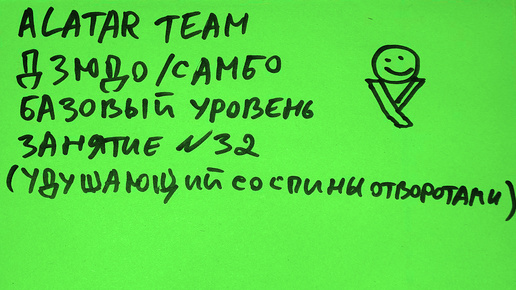 ALATAR TEAM
ДЗЮДО/САМБО
БАЗОВЫЙ УРОВЕНЬ
ЗАНЯТИЕ №32
(УДУШАЮЩИЙ СО СПИНЫ ОТВОРОТАМИ)